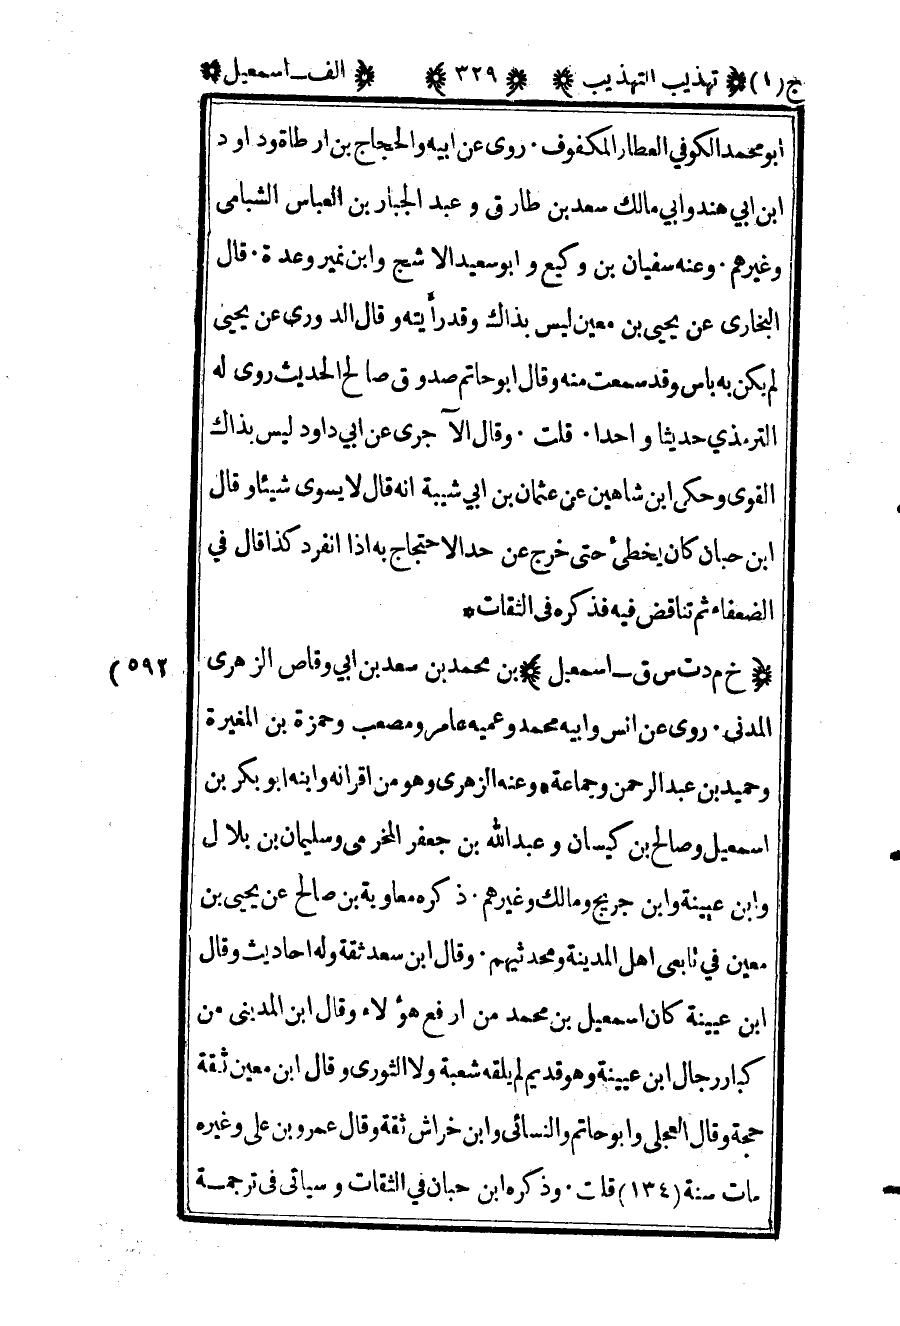 ج (١) ﴿ تهذيب التهذيب ﴾ ﴿ ٣٢٩ ﴾ ﴿ الف ـ اسمعيل ﴾
ابو محمد الكوفي العطار المكفوف · روى عن ابيه والحجاج بن ارطاة وداود
ابن ابي هند وابي مالك سعد بن طارق و عبد الجبار بن العباس الشبامى
وغيرهم · وعنه سفيان بن وكيع و ابو سعيد الاشج وابن نمير وعدة · قال
البخارى عن يحيى بن معين ليس بذاك وقد رأيته وقال الدورى عن يحيى
لم يكن به باس وقد سمعت منه وقال ابو حاتم صدوق صالح الحديث روى له
الترمذي حديثا واحدا · قلت · وقال الآجرى عن ابي داود ليس بذاك
القوى وحكى ابن شاهين عن عثمان بن ابي شيبة انه قال لا يسوى شيئا وقال
ابن حبان كان يخطئ حتى خرج عن حد الاحتجاج به اذا انفرد كذا قال في
الضعفاء ثم تناقض فيه فذكره فى الثقات *
﴿ خ م د ت س ق ـ اسمعيل ﴾ بن محمد بن سعد بن ابي وقاص الزهرى (٥٩٢
المدنى · روى عن انس وابيه محمد وعميه عامر ومصعب وحمزة بن المغيرة
وحميد بن عبد الرحمن وجماعة * وعنه الزهرى وهو من اقرانه وابنه ابو بكر بن
اسمعيل وصالح بن كيسان و عبد الله بن جعفر المخرمى وسليمان بن بلال
وابن عيينة وابن جريج ومالك وغيرهم · ذكره معاوية بن صالح عن يحيى بن
معين في تابعى اهل المدينة ومحدثيهم · وقال ابن سعد ثقة وله احاديث وقال
ابن عيينة كان اسمعيل بن محمد من ارفع هؤلاء وقال ابن المدينى من
كبار رجال ابن عيينة وهو قديم لم يلقه شعبة ولا الثورى وقال ابن معين ثقة
حجة وقال العجلى وابو حاتم والنسائى وابن خراش ثقة وقال عمرو بن على وغيره
مات سنة (١٣٤) قلت · وذكره ابن حبان في الثقات و سياتى فى ترجمة